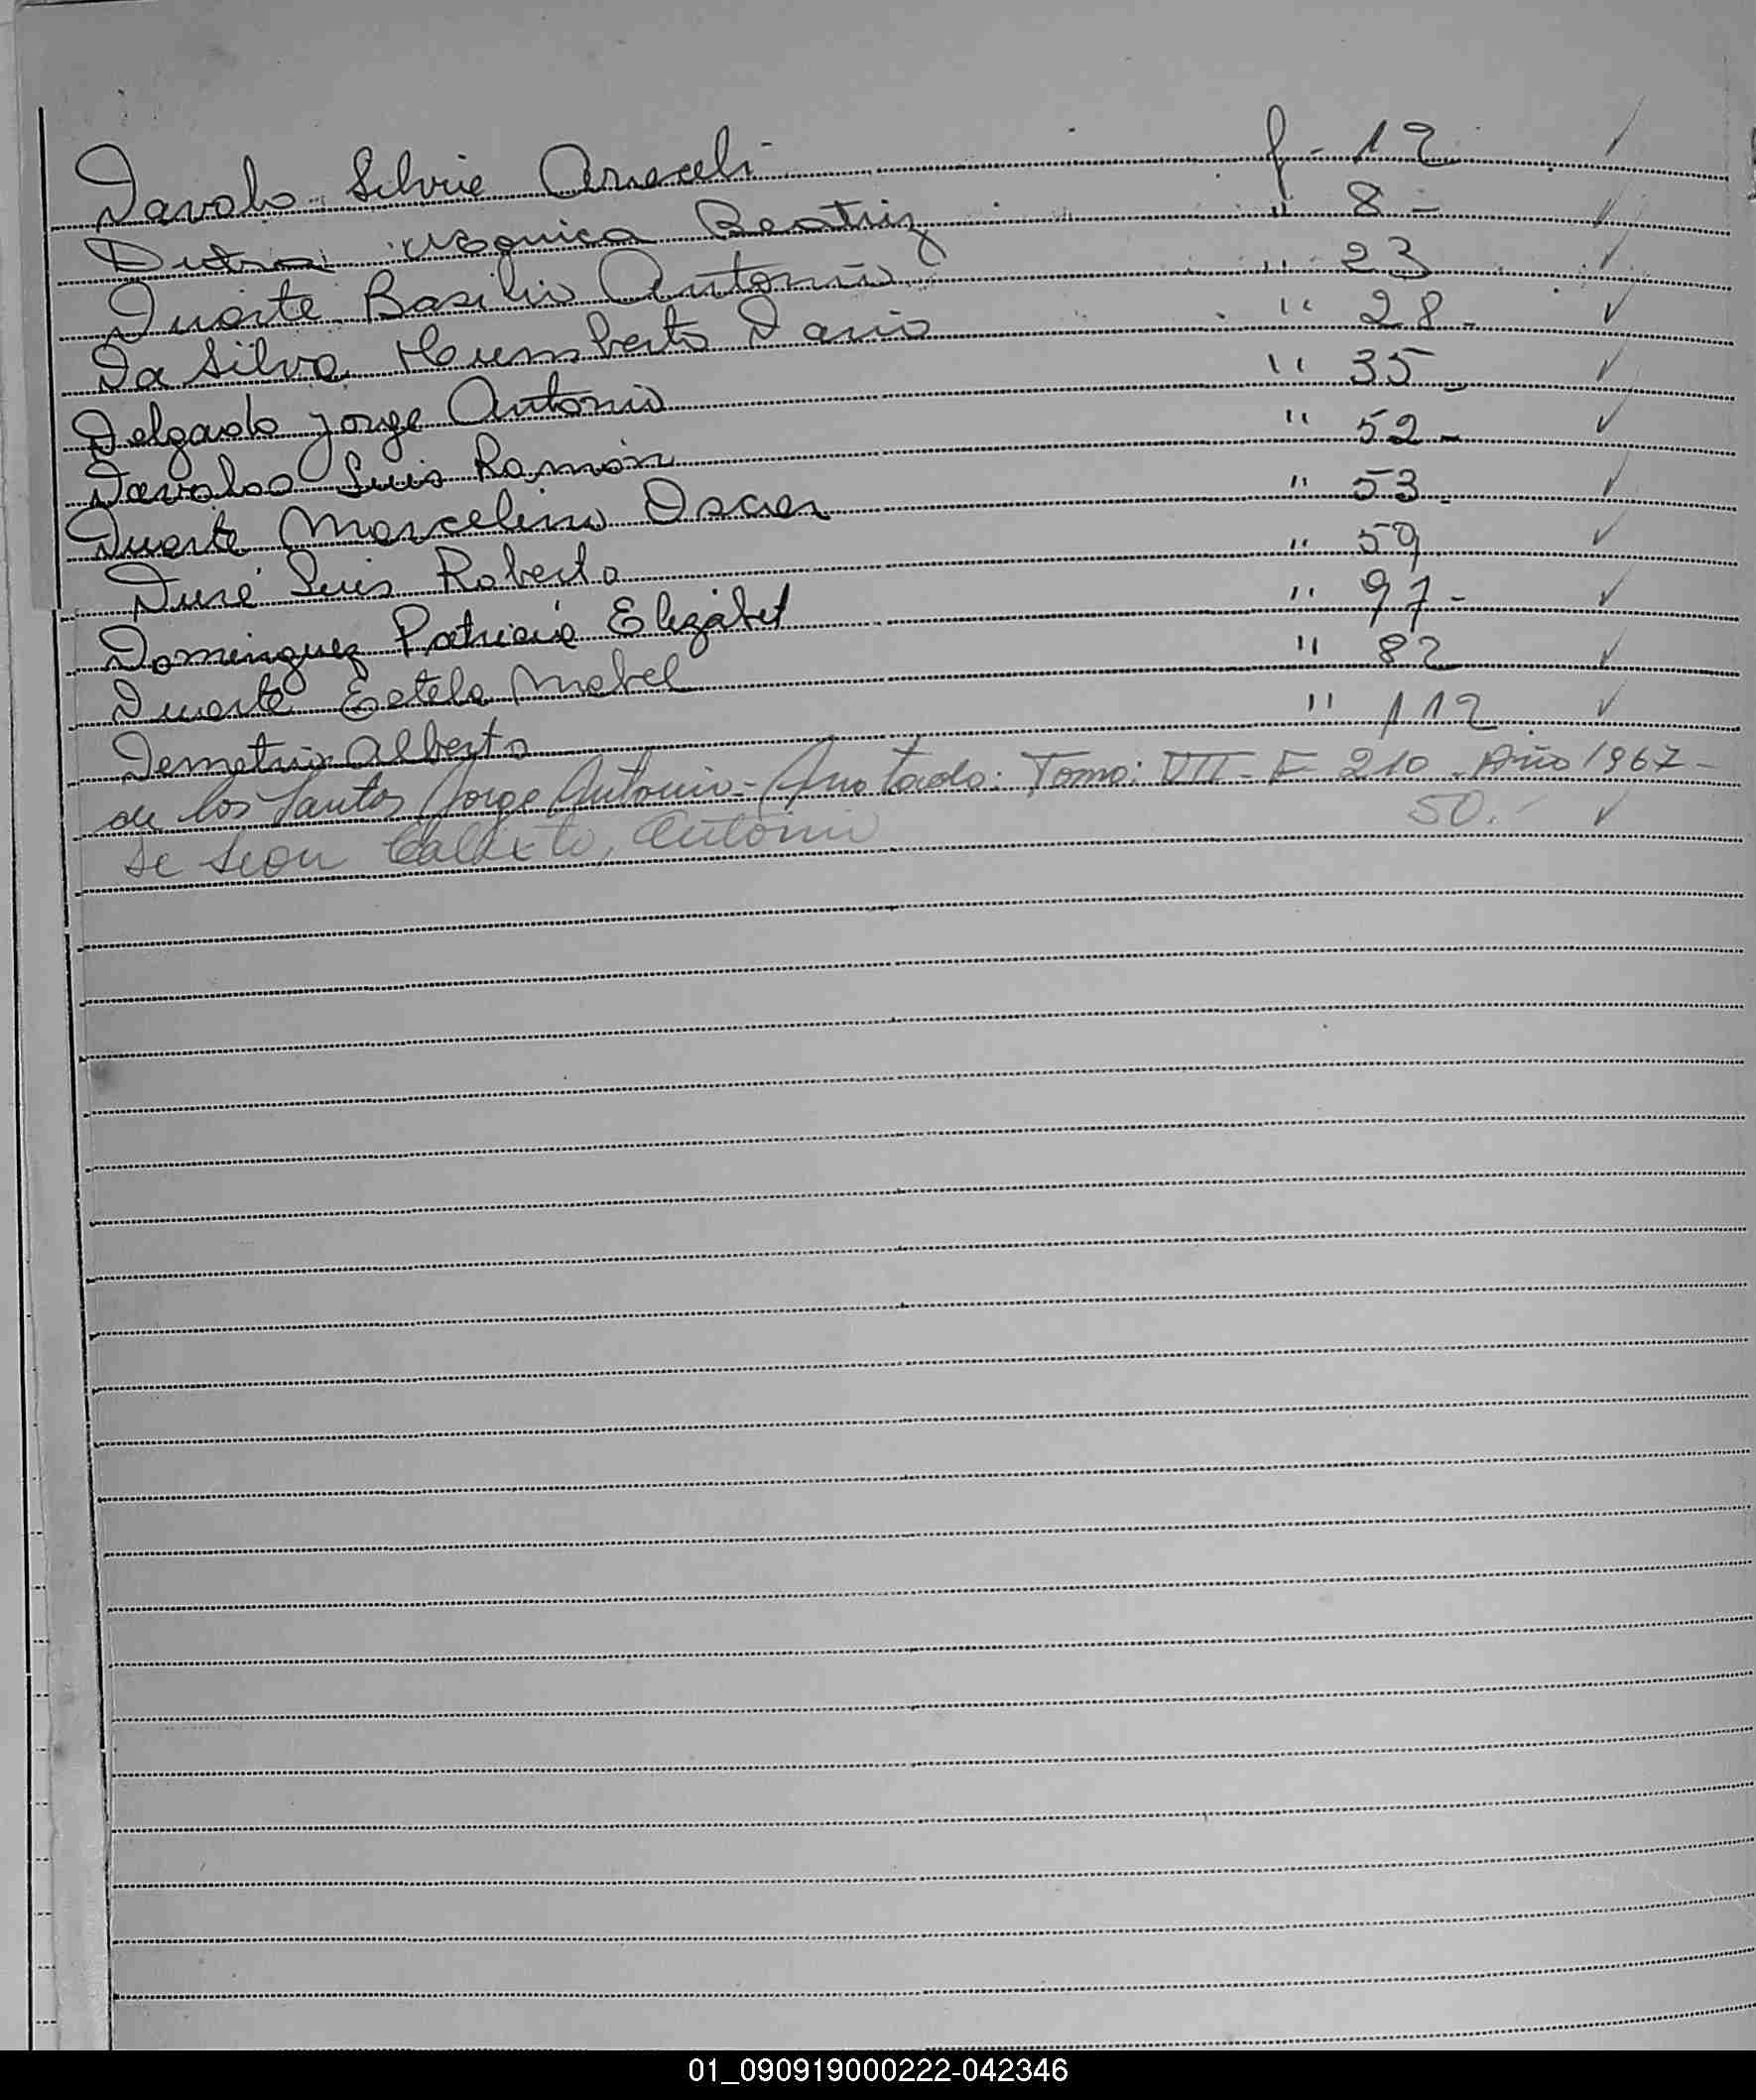 Davalo Silvia Araceli f - 12 ✓
Dutra Monica Beatriz " 8 - ✓
Duarte Basilio Antonio " 23 ✓
Da Silva Humberto Dario " 28 - ✓
Delgado Jorge Antonio " 35 - ✓
Davalos Luis Ramón " 52 - ✓
Duarte Marcelino Oscar " 53 - ✓
Duré Luis Roberto " 59 ✓
Dominguez Patricia Elizabet " 97 - ✓
Duarte Estela Mabel " 82 ✓
Demetrio Alberto " 112 ✓
de los Santos Jorge Antonio - Anotado: Tomo: VII - F 210 - Año 1967 -
De Calixto, Antonio 50. - ✓
01_090919000222-042346